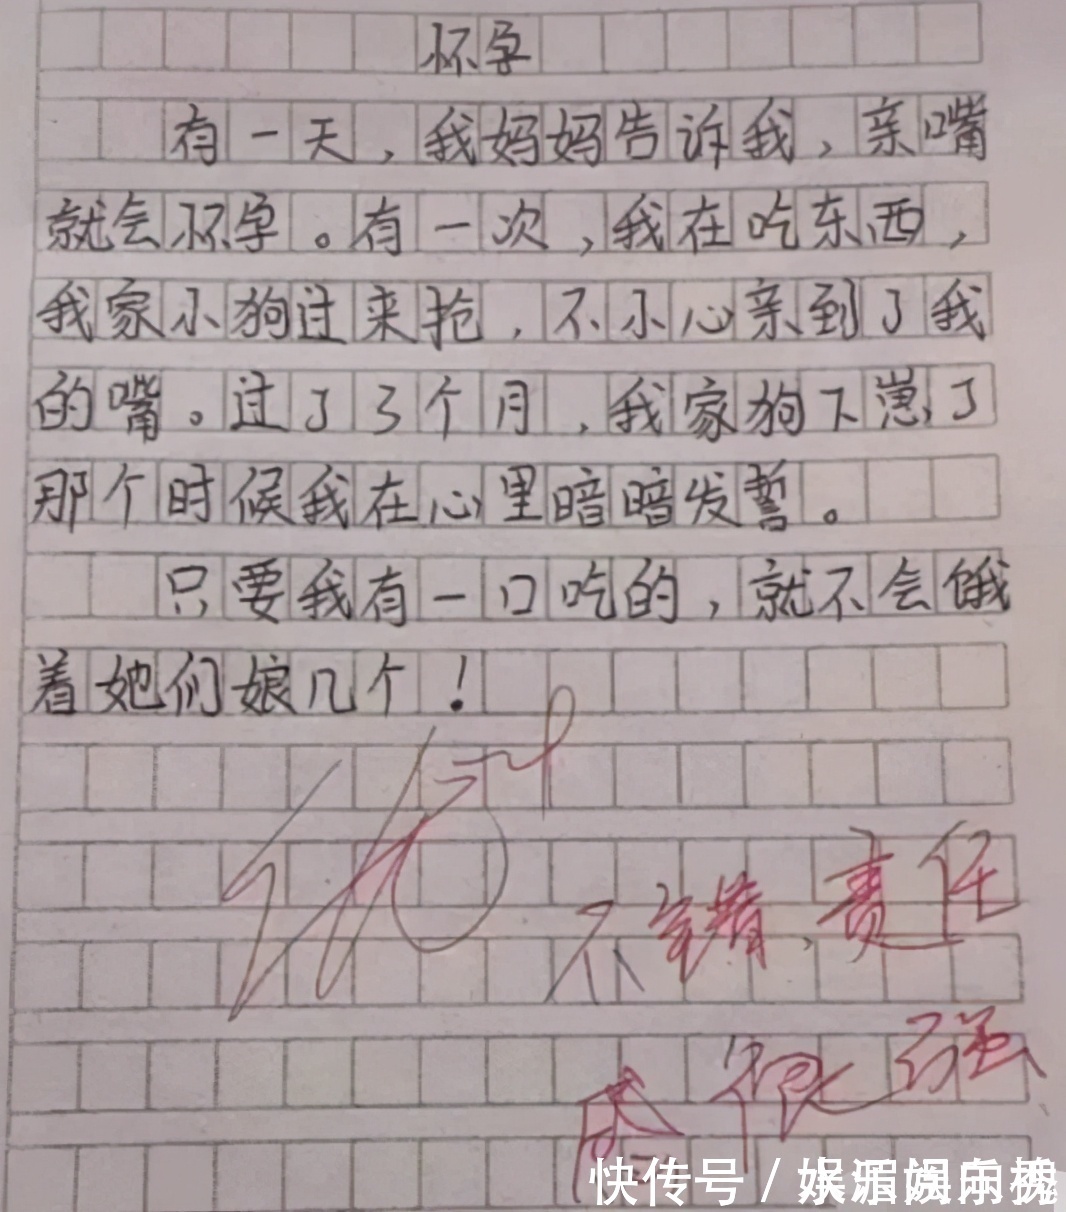 怀孕
有一天,我妈妈告诉我,亲嘴
就会怀孕。有一次,我在吃东西,
我家小狗过来抢,不小心亲到了我
的嘴。过了3个月,我家狗下崽了
那个时候我在心里暗暗发誓。
只要我有一口吃的,就不会饿
着她们娘几个!
不错,责任
感很强
快传号/娱